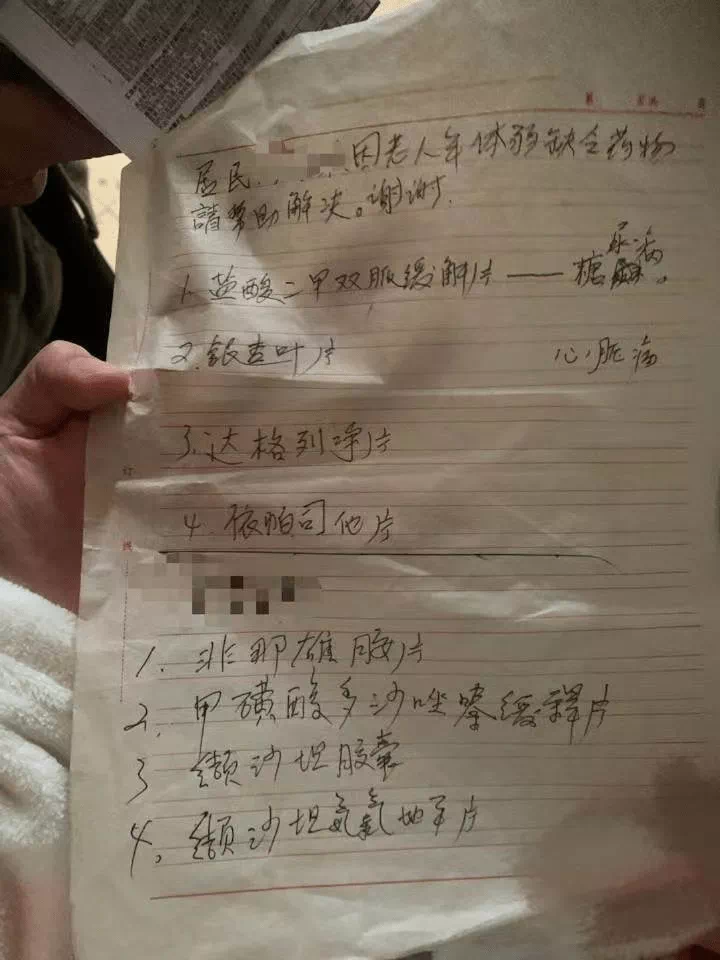 居民 因老人年体弱缺乏药物
請帮助解决。谢谢.
1. 盐酸二甲双胍缓解片——糖尿病。
2. 银杏叶片 心脏病
3. 达格列净片
4. 依帕司他片
1. 非那雄胺片
2. 甲磺酸多沙唑嗪缓释片
3 缬沙坦胶囊
4. 缬沙坦氨氯地平片